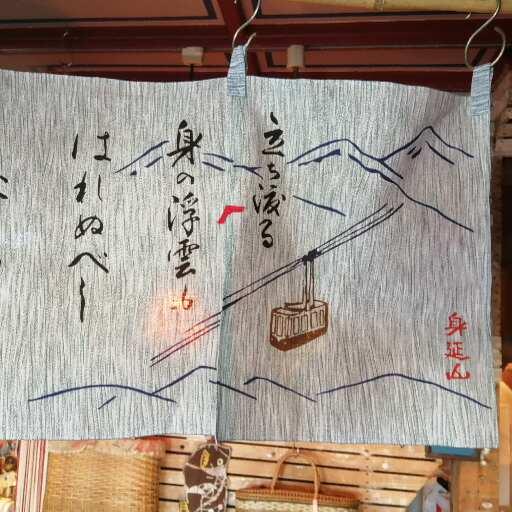 立ち渡る
身の浮雲も
はれぬべし
身延山